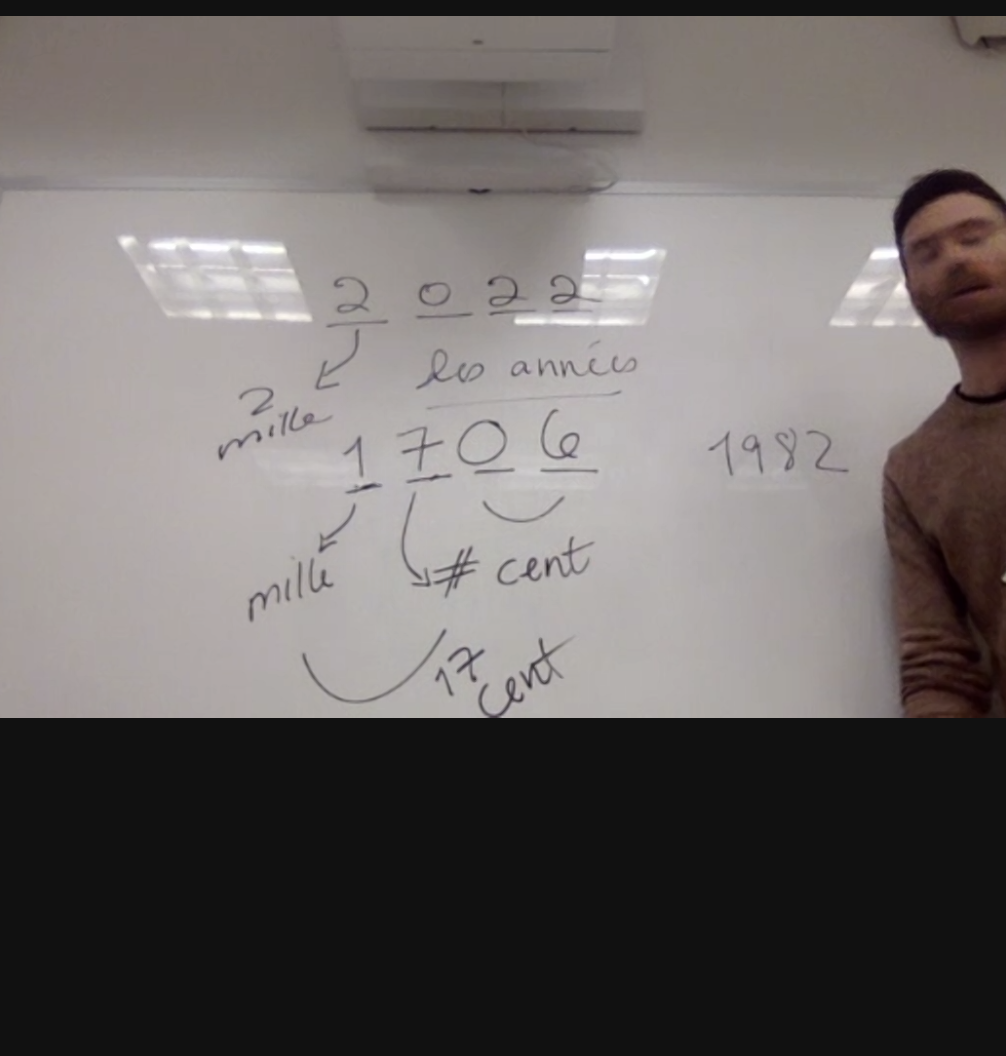 2 0 2 2
2 mille
les années
1 7 0 6
1982
mille
# cent
17 cent